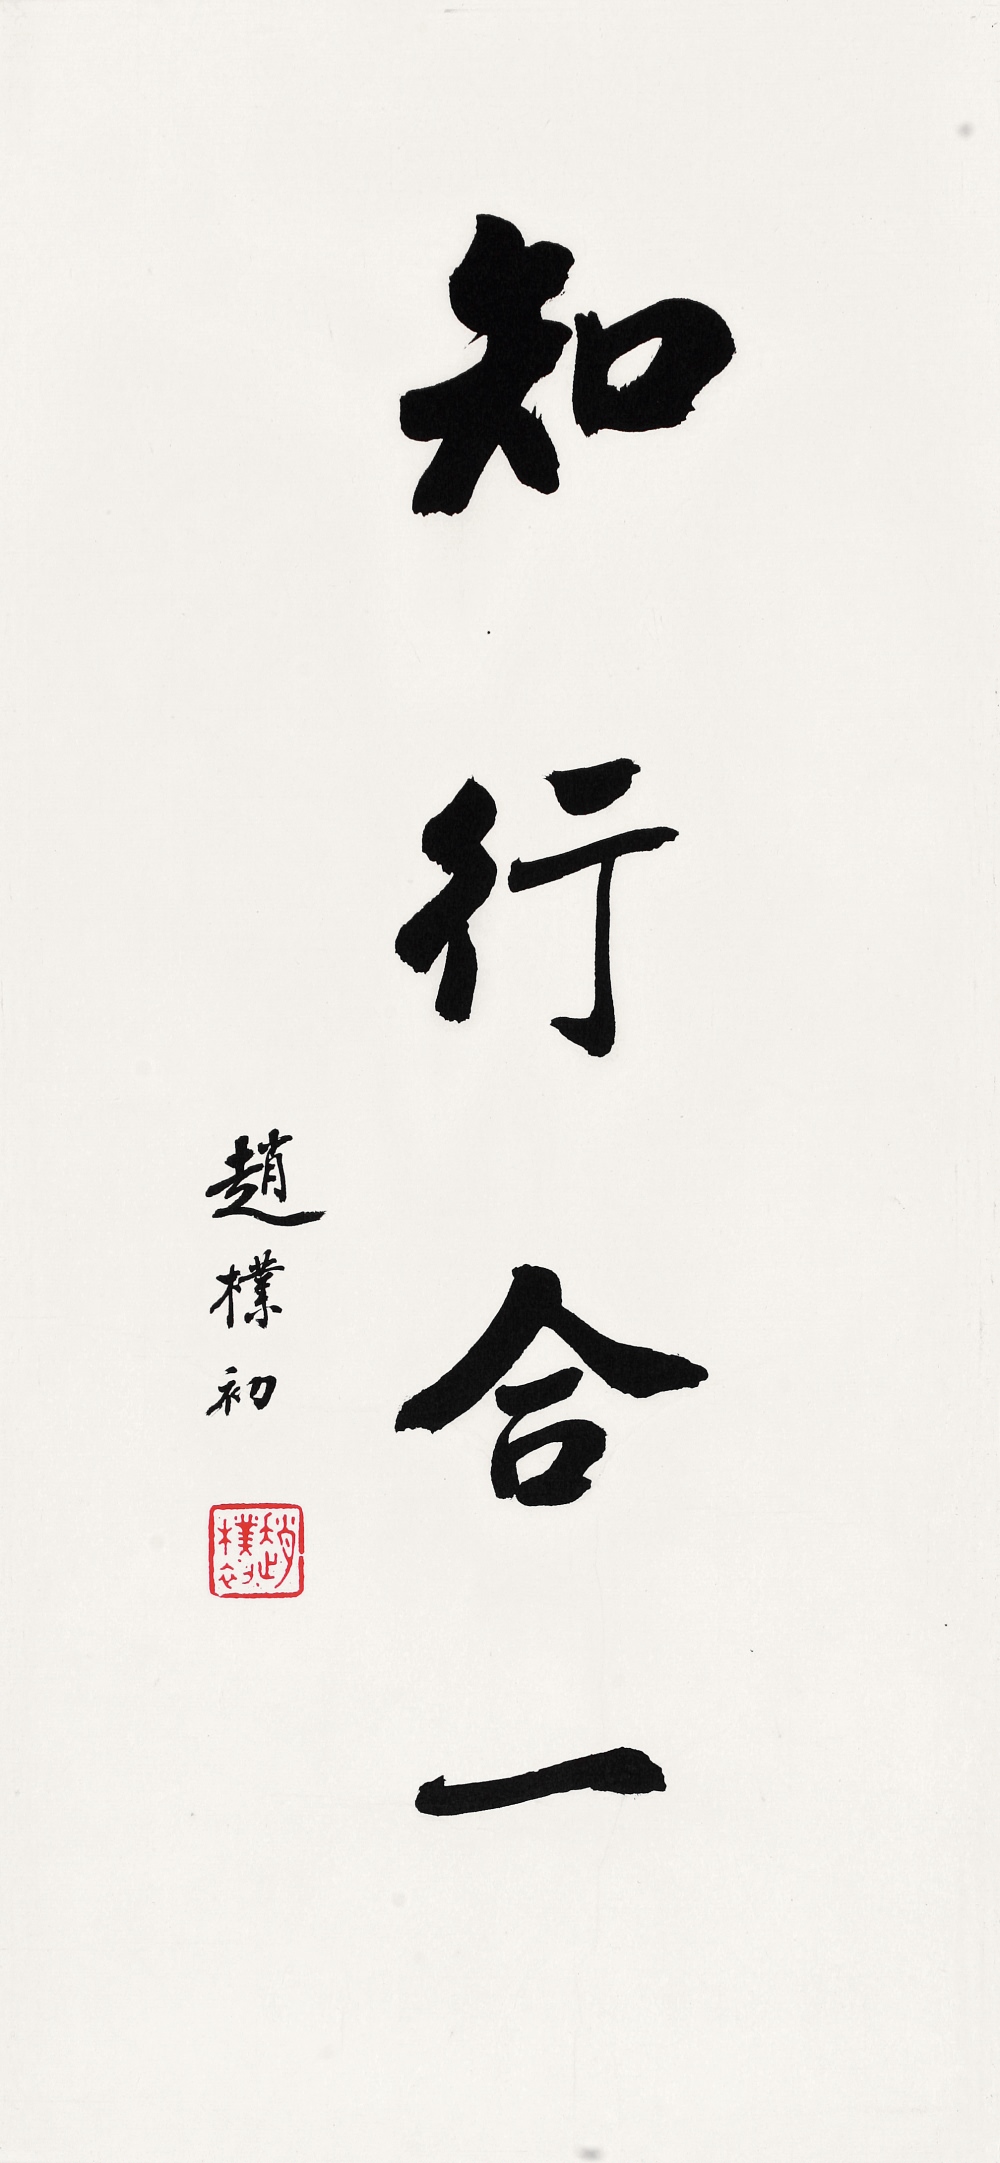 知行合一
趙樸初
趙樸初